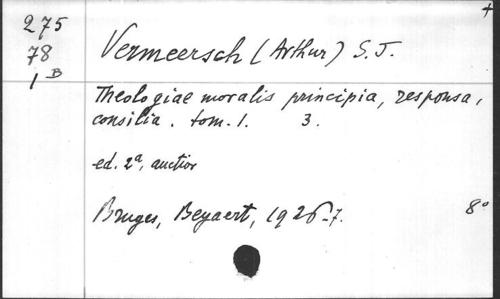 275
78
1 B
+
Vermeersch (Arthur) S.J.
Theologiae moralis principia, responsa,
consilia. tom. 1. 3.
ed. 2ª, auctior
Bruges, Beyaert, 1926-7. 8°